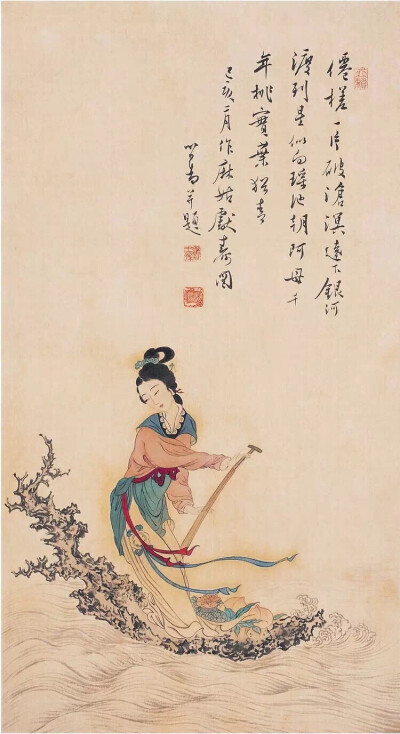 僊槎一片破滄溟遠下銀河
渡列星似向瑤池朝阿母千
年桃實葉猶青
己亥二月作麻姑獻壽圖
心畬并題